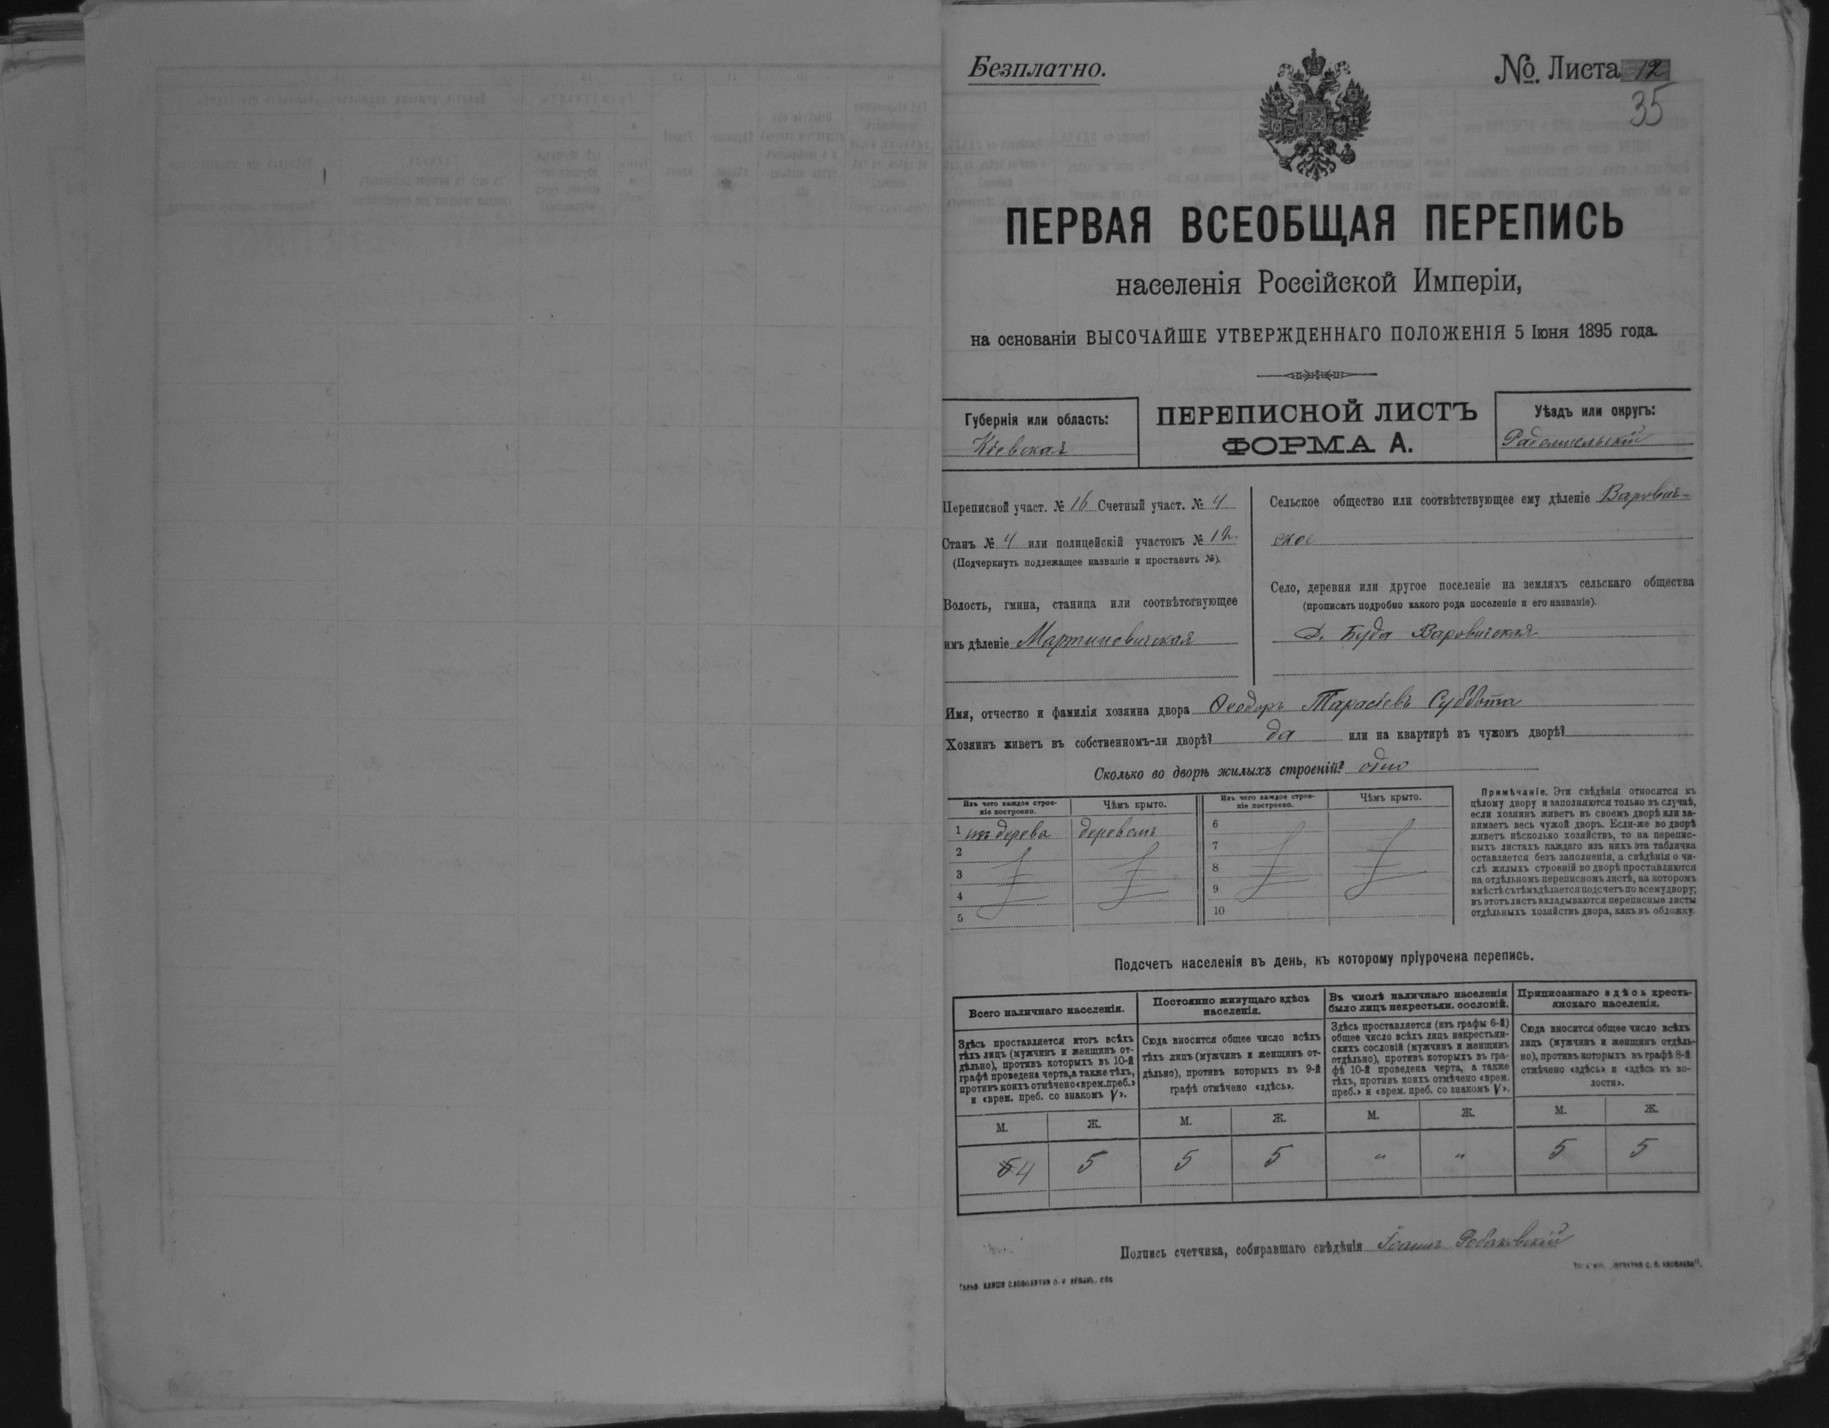 Безплатно.
№. Листа 12
35
ПЕРВАЯ ВСЕОБЩАЯ ПЕРЕПИСЬ
населенія Россійской Имперіи,
на основаніи ВЫСОЧАЙШЕ УТВЕРЖДЕННАГО ПОЛОЖЕНІЯ 5 Іюня 1895 года.
Губернія или область:
Кіевская
ПЕРЕПИСНОЙ ЛИСТЪ
ФОРМА А.
Уѣздъ или округъ:
Радомысльскій
Переписной участ. № 16 Счетный участ. № 4
Станъ № 4 или полицейскій участокъ № 12.
(Подчеркнуть подлежащее названіе и проставить №).
Волость, гмина, станица или соотвѣтствующее
имъ дѣленіе Мартыновичская
Сельское общество или соотвѣтствующее ему дѣленіе Варович-
ское
Село, деревня или другое поселеніе на земляхъ сельскаго общества
(прописать подробно какого рода поселеніе и его названіе).
Д. Буда Варовичская
Имя, отчество и фамилія хозяина двора Ѳеодоръ Тарасіевъ Суббота
Хозяинъ живетъ въ собственномъ-ли дворѣ? да или на квартирѣ въ чужомъ дворѣ?
Сколько во дворѣ жилыхъ строеній? одно
Изъ чего каждое строе-
ніе построено.
Чѣмъ крыто.
Изъ чего каждое строе-
ніе построено.
Чѣмъ крыто.
1 изъ дерева деревомъ
2
3
4
5
6
7
8
9
10
Примѣчаніе. Эти свѣдѣнія относятся къ
цѣлому двору и заполняются только въ случаѣ,
если хозяинъ живетъ въ своемъ дворѣ или за-
нимаетъ весь чужой дворъ. Если-же во дворѣ
живетъ нѣсколько хозяйствъ, то на перепис-
ныхъ листахъ каждаго изъ нихъ эта табличка
оставляется безъ заполненія, а свѣдѣнія о чи-
слѣ жилыхъ строеній во дворѣ проставляются
на отдѣльномъ переписномъ листѣ, на которомъ
вмѣстѣ съ тѣмъ дѣлается подсчетъ по всему двору;
въ этотъ листъ вкладываются переписные листы
отдѣльныхъ хозяйствъ двора, какъ въ обложку.
Подсчетъ населенія въ день, къ которому пріурочена перепись.
Всего наличнаго населенія.
Здѣсь проставляется итогъ всѣхъ
тѣхъ лицъ (мужчинъ и женщинъ от-
дѣльно), противъ которыхъ въ 10-й
графѣ проведена черта, а также тѣхъ,
противъ коихъ отмѣчено «врем. преб.»
и «врем. преб. со знакомъ V».
Постоянно живущаго здѣсь
населенія.
Сюда вносится общее число всѣхъ
тѣхъ лицъ (мужчинъ и женщинъ от-
дѣльно), противъ которыхъ въ 9-й
графѣ отмѣчено «здѣсь».
Въ числѣ наличнаго населенія
было лицъ некрестьян. сословій.
Здѣсь проставляется (изъ графы 6-й)
общее число всѣхъ лицъ некрестьян-
скихъ сословій (мужчинъ и женщинъ
отдѣльно), противъ которыхъ въ гра-
фѣ 10-й проведена черта, а также
тѣхъ, противъ коихъ отмѣчено «врем.
преб.» и «врем. преб. со знакомъ V».
Приписаннаго здѣсь кресть-
янскаго населенія.
Сюда вносится общее число всѣхъ
лицъ (мужчинъ и женщинъ отдѣль-
но), противъ которыхъ въ графѣ 8-й
отмѣчено «здѣсь» и «здѣсь въ во-
лости».
М. Ж. М. Ж. М. Ж. М. Ж.
5 4 5 5 5 " " 5 5
Подпись счетчика, собиравшаго свѣдѣнія Іоаннъ